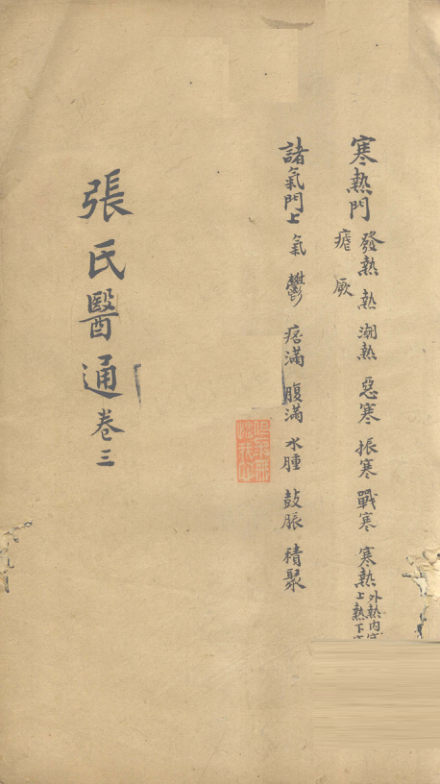 寒熱門 發熱 熱 潮熱 惡寒 振寒 戰寒 寒熱 外熱內寒
上熱下寒
瘧 厥
諸氣門上 氣 鬱 痞滿 腹滿 水腫 鼓脹 積聚
張氏醫通 卷三